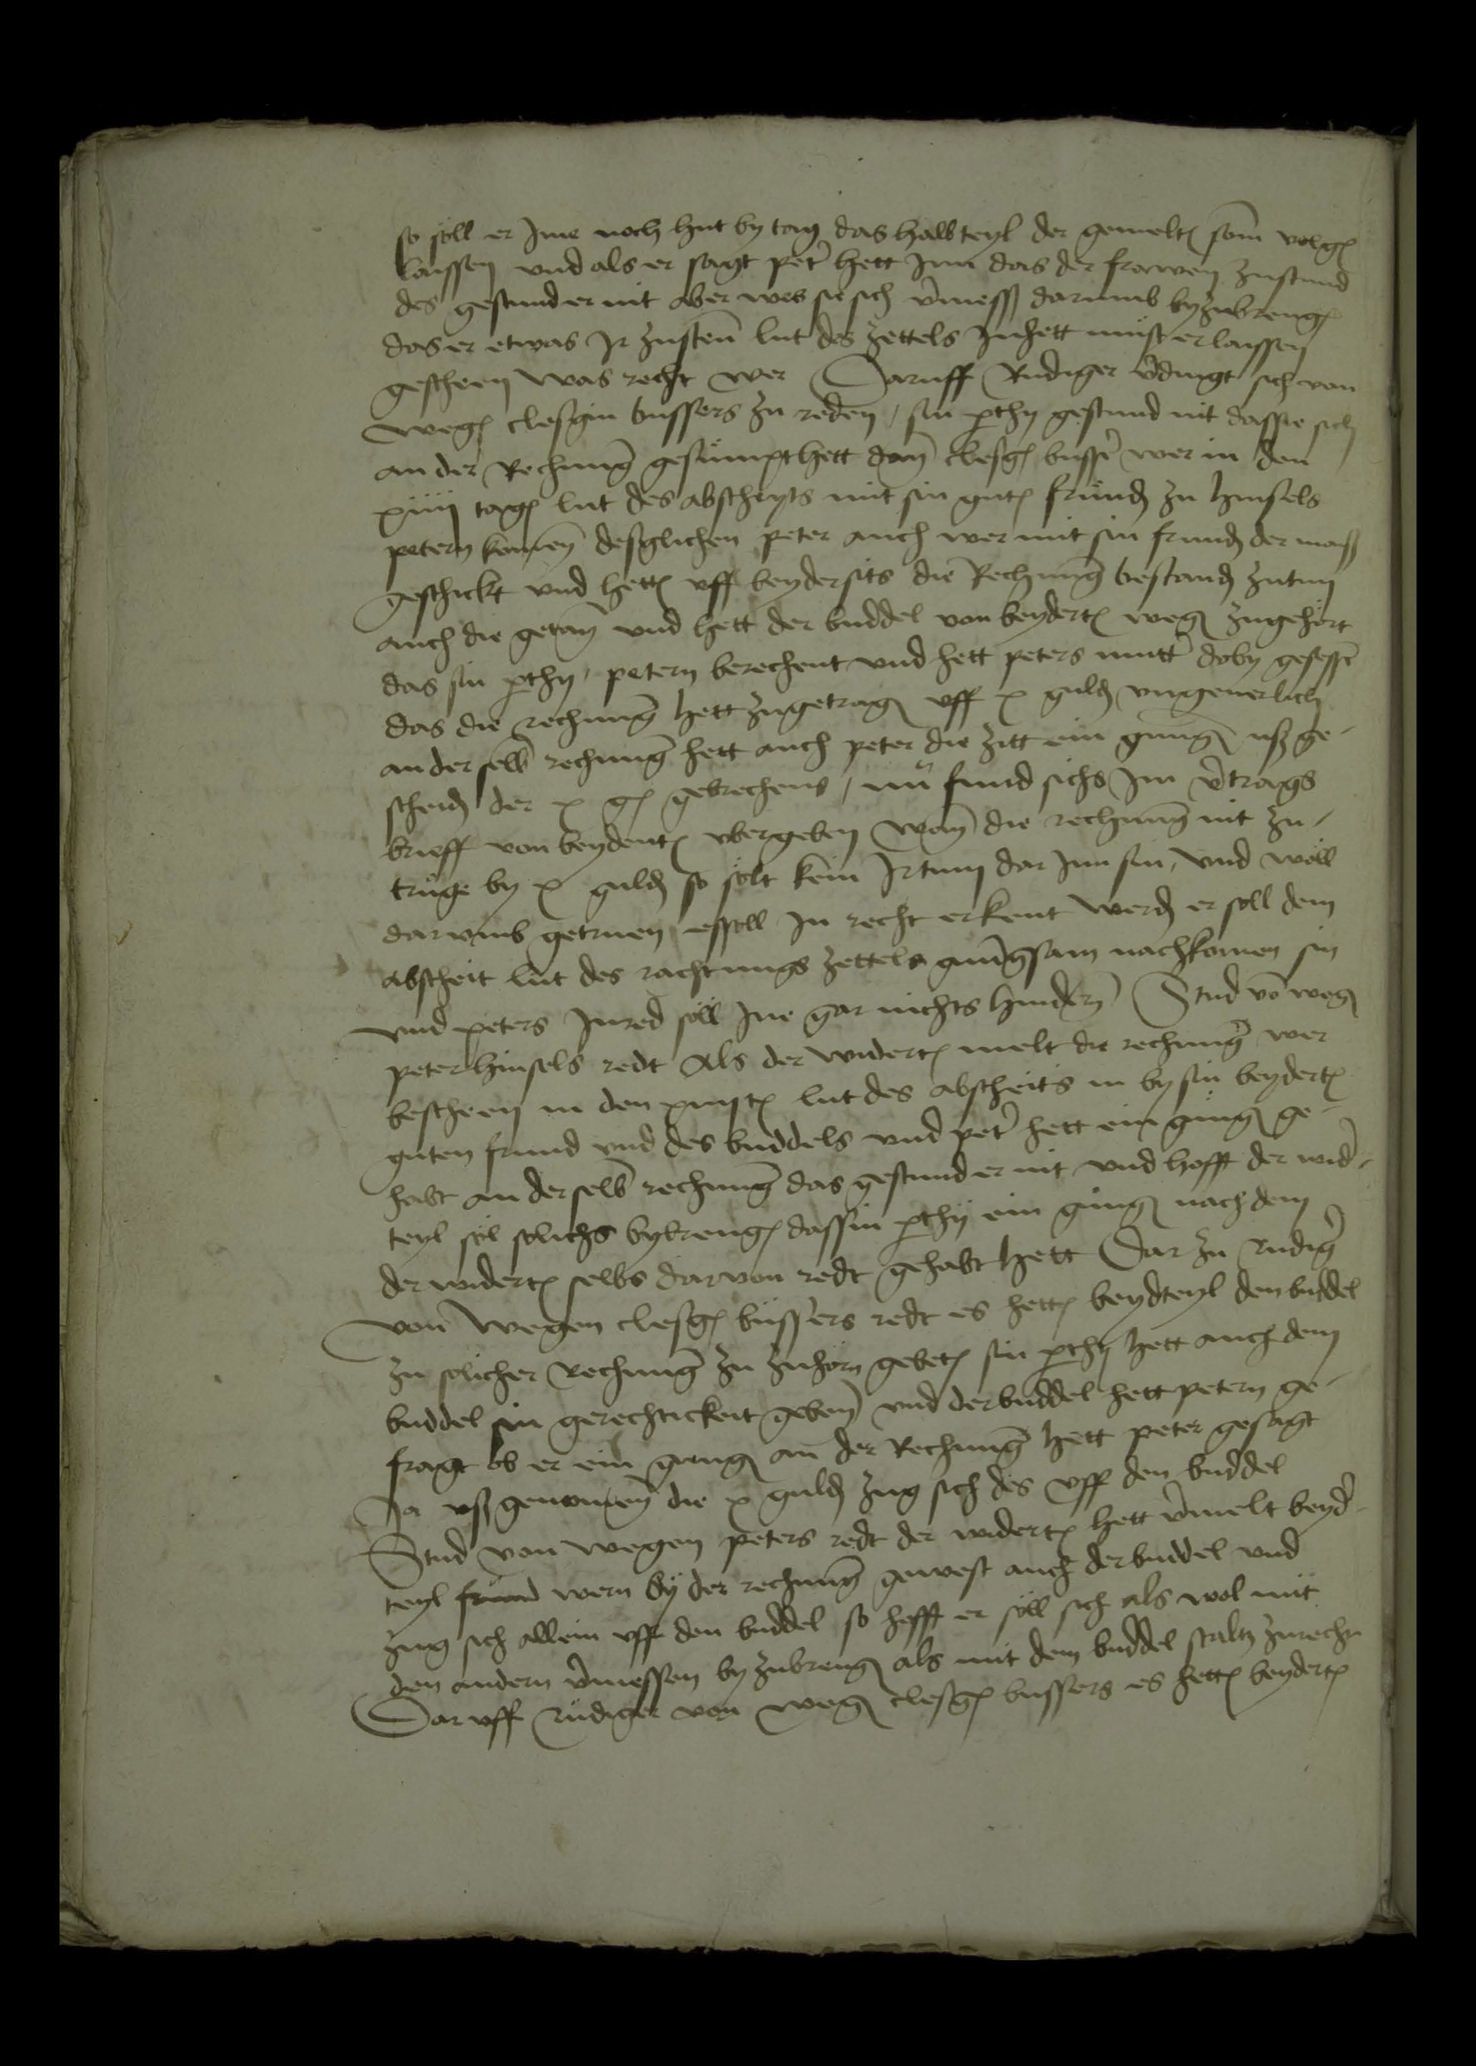 so söll er Ime noch hut by tag das halbteyl der gemelt som volg
laissen und als er sagt pet hett Inn das der frawen zustund
des gestund er nit aber wes sie sich vmess darumb byzubreng
das er etwas Ir zusten lut des zettels Inhett must er laissen
gescheen was recht wer Daruff Rudiger vdingt sich von
weg clesgin bussers zu reden / sin pthy gestund nit das sie sich
an der Rechnung gesumpt hett dan clesg busser wer in den
xiiij tag lut des abscheyts mit sin gut frund zu hinsels
petern komen desglichen peter auch wer mit sin frund der maß
geschickt und hett uff beydersits die Rechnung bestand zutun
auch die getan und hett der buddel von beydert weg zugehort
das sin pthy / petern berechent und hett peters mutt doby gesess
das die rechnung hett zugetrag uff x guld ungeuerlich
an derselb rechnung hett auch peter die zitt ein gnung ußge-
scheid der x g gebrechens / nu fund sichs Im vtrags
brieff von beydent ubergeben wan die rechnung nit zu-
truge by x guld so solt kein Irtum dar Inn sin / und woll
darumb getruen es soll In recht erkent werd er soll dem
abscheit lut des rachtungs zettels gnungsam nachkomen sin
und peters Inred söll Ine gar nichts hindern Stud vo weg
peter hinsels redt Als der widert melt die rechnung wer
bescheen in den xiiij t lut des abscheits in by sin beydert
guten frund und des buddels und pet hett ein gnung ge-
habt an derselb rechnung das gestund er nit und hofft der wid-
teyl sol solichs bybreng das sin pthy ein gnung nach dem
der widert selbs darvon redt gehabt hett Dar zu rudig
von wegen clesg bussers redt es hett beydteyl den buddel
zu solicher Rechnung zu zuhorn gebet sin pthy hett auch dem
buddel sin gerechtickeit geben und der buddel hett petern ge-
fragt ob er ein gnung an der Rechnung hett peter gesagt
Ja ußgenomen die x guld zug sich des uff den buddel
Stud von wegen peters redt der widert hett vmelt beyd-
teyl frund wern by der rechnung gewest auch der buddel und
zug sich allein uff den buddel so hofft er söll sich als wol mit
den andern vmessen by zubreng als mit dem buddel
Dar uff rudiger von weg clesg bussers es hett beydert